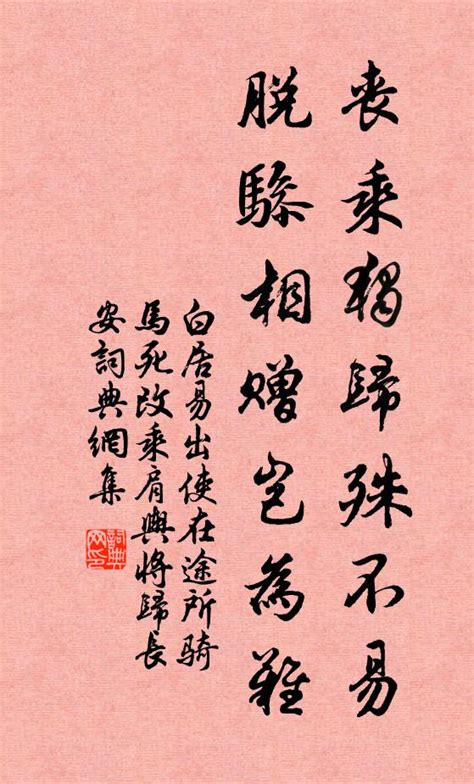 喪乘獨歸殊不易
脫驂相贈豈為難
白居易出使在途所騎
馬死改乘肩輿將歸長
安詞典網集
詞典网印